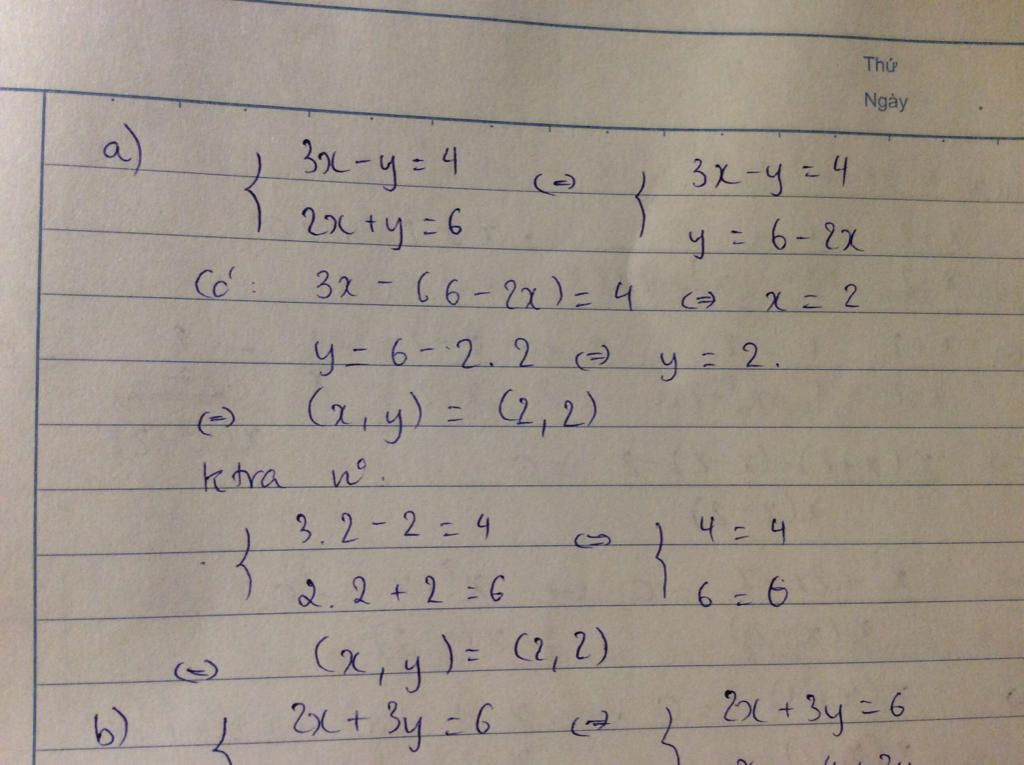 Thứ
Ngày
a) { 3x - y = 4 <=> { 3x - y = 4
2x + y = 6 y = 6 - 2x
Có: 3x - (6 - 2x) = 4 <=> x = 2
y = 6 - 2. 2 <=> y = 2.
<=> (x, y) = (2, 2)
ktra no.
{ 3. 2 - 2 = 4 <=> { 4 = 4
2. 2 + 2 = 6 6 = 6
<=> (x, y) = (2, 2)
b) { 2x + 3y = 6 <=> { 2x + 3y = 6